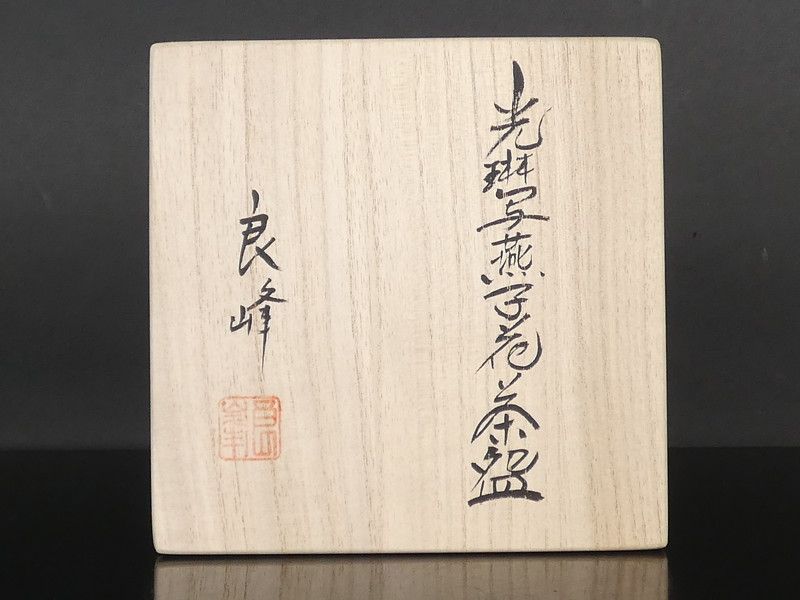 光琳写燕子花茶盌
良峰